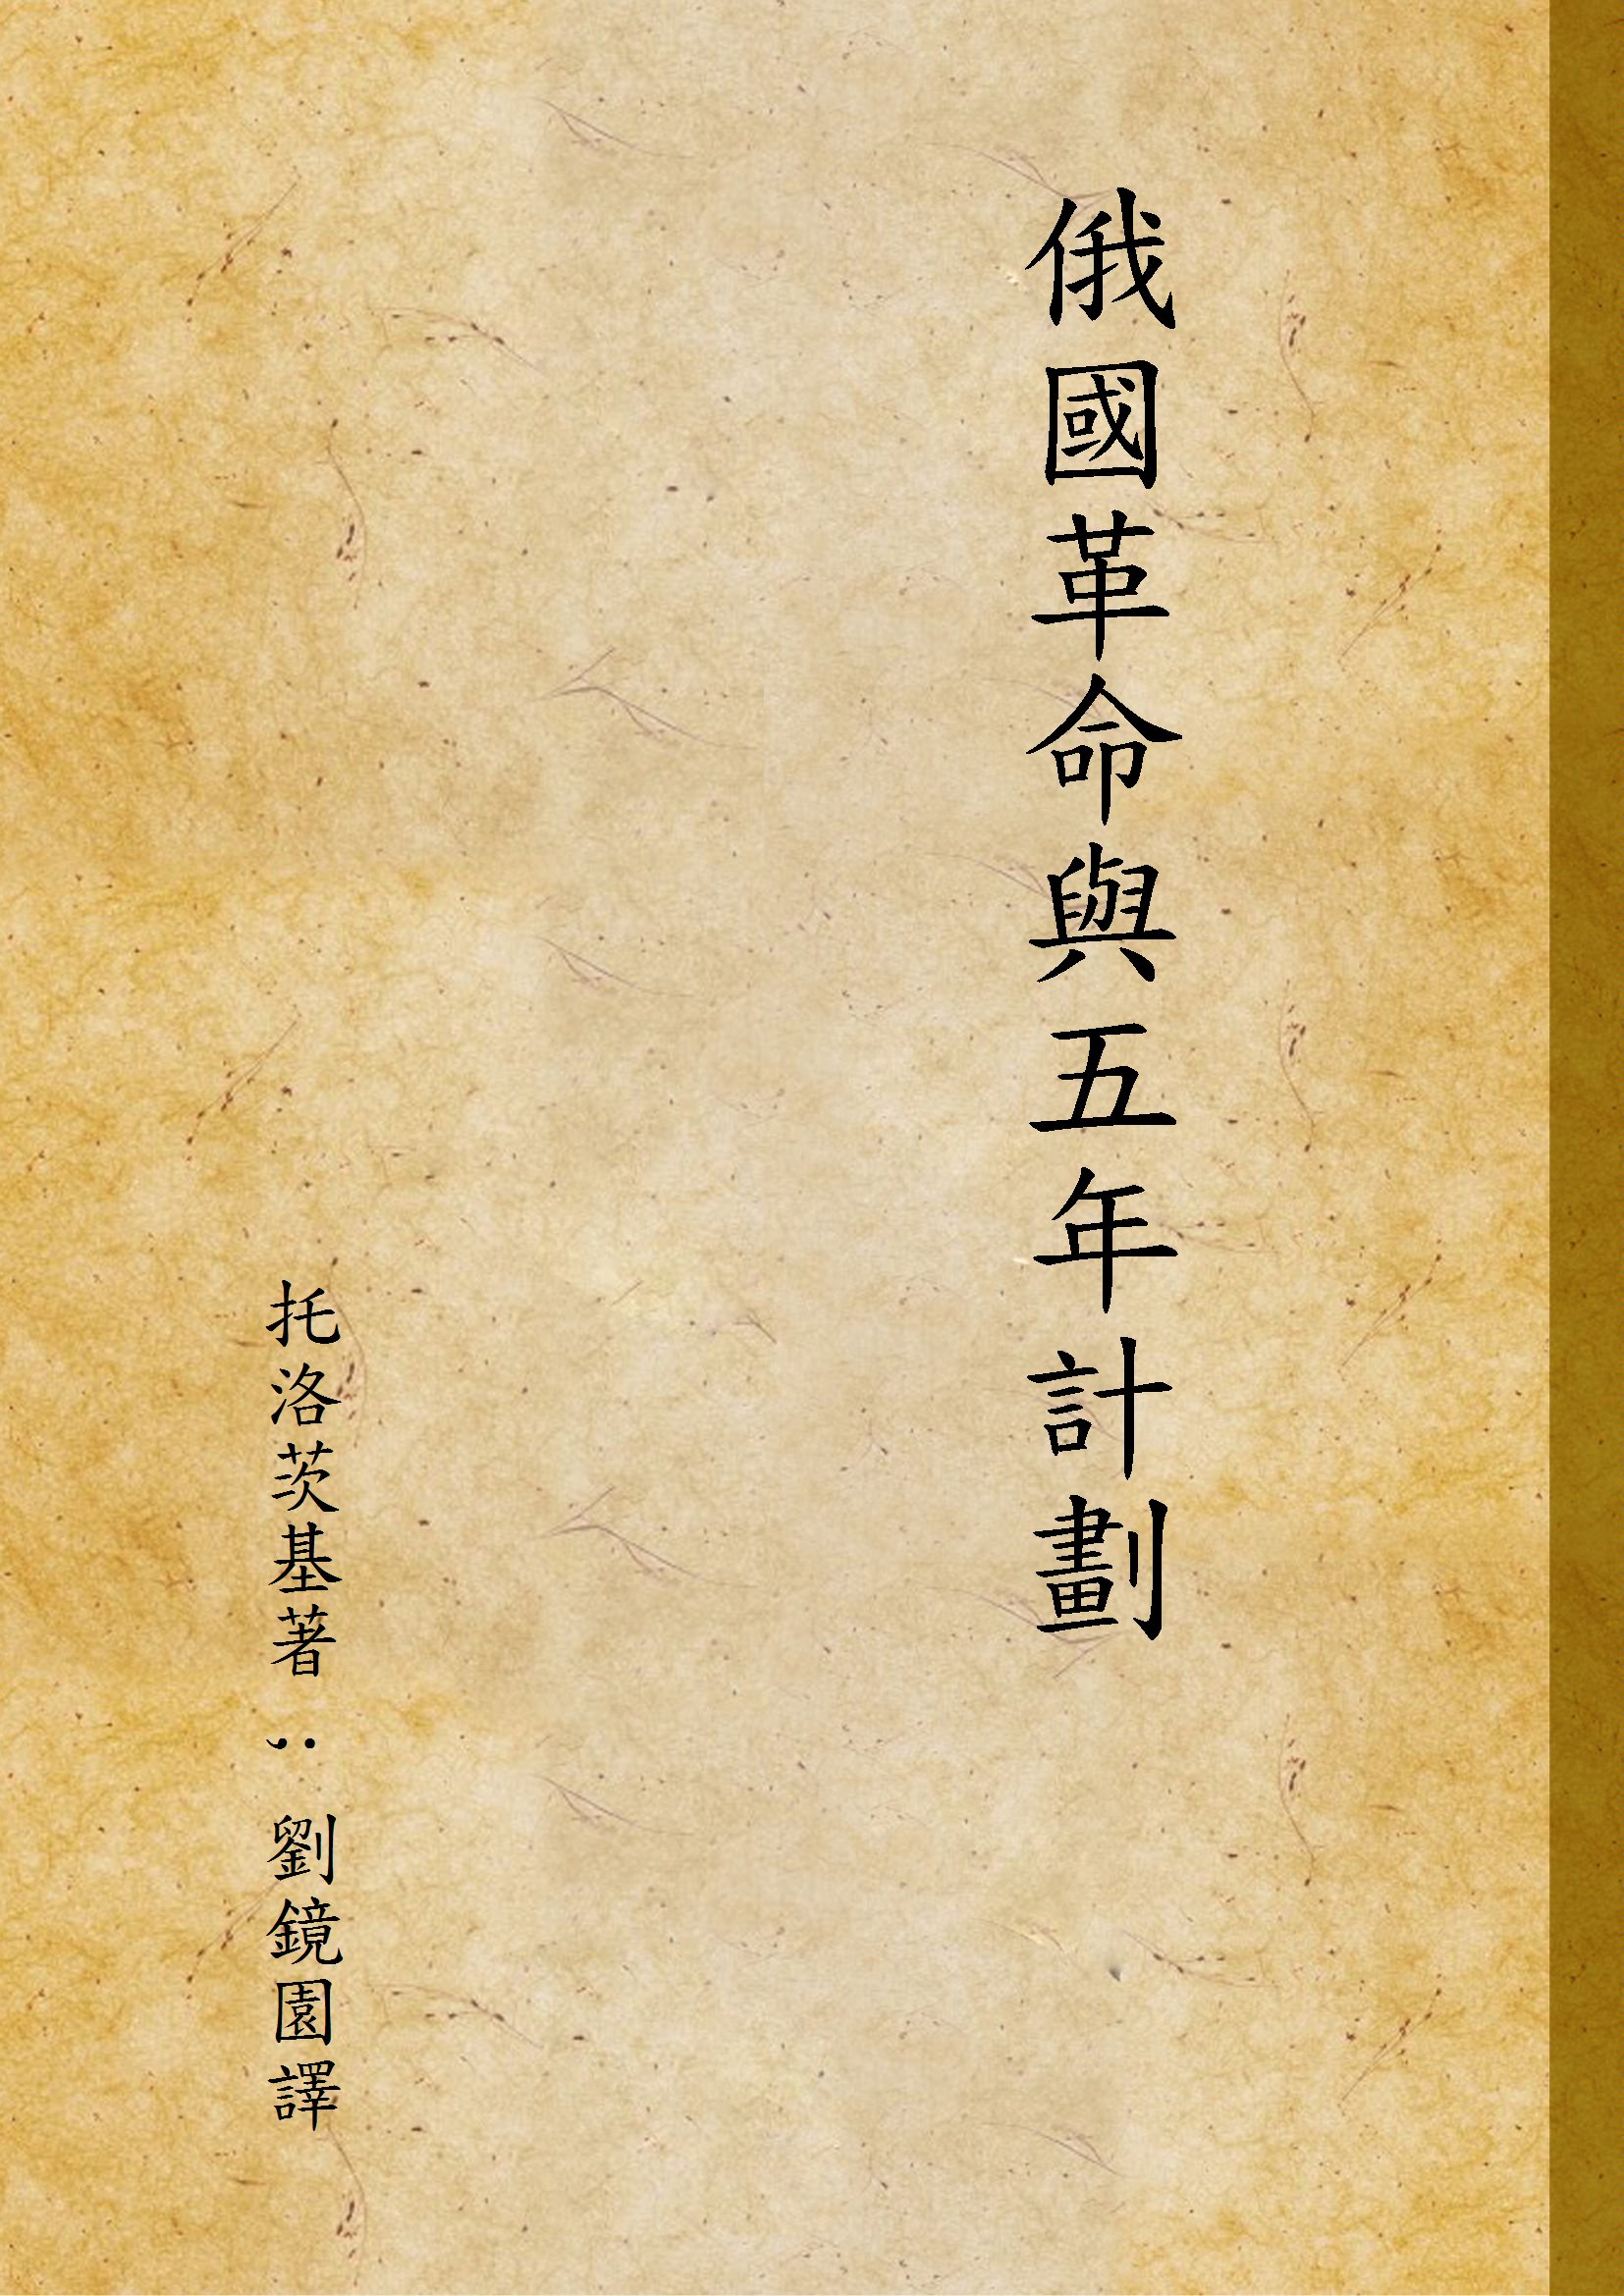 俄國革命與五年計劃
托洛茨基著；劉鏡園譯